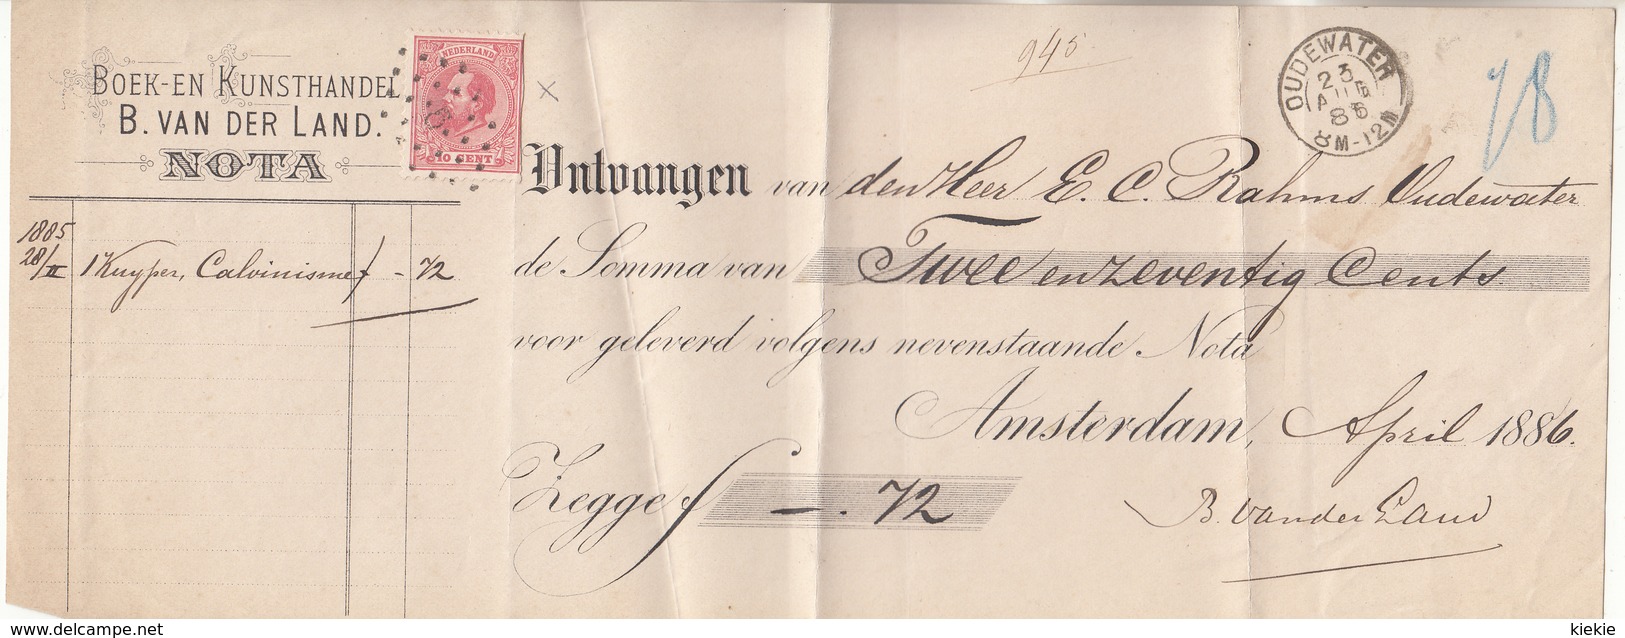 BOEK-EN KUNSTHANDEL
B. VAN DER LAND.
NOTA
NEDERLAND
10 CENT
945
OUDEWATER
8M-12M
Ontvangen van den Heer E. C. Rahms Oudewater
de Somma van Twee en zeventig Cents.
voor geleverd volgens nevenstaande Nota
Amsterdam, April 1886.
Zegge f —. 72
B. van der Land
1885
28/II 1 Kuyper, Calvinisme f - 72
delcampe.net
kiekie